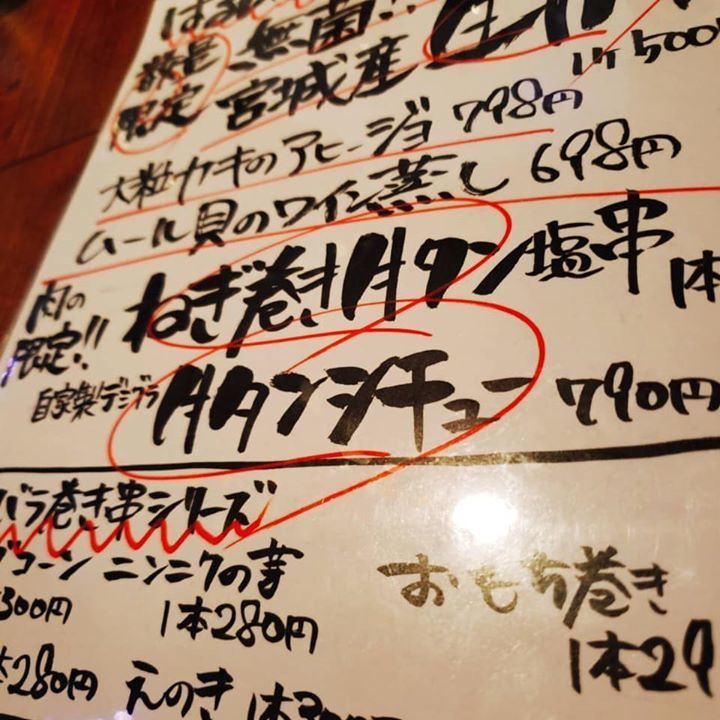 数量限定
無菌!!
宮城産
500
大粒カキのアヒージョ 798円
ムール貝のワイン蒸し 698円
肉の限定!!
ねぎ巻き牛タン塩串 1本
自家製デミグラ
牛タンシチュー 790円
バラ巻き串シリーズ
コーン ニンニクの芽
300円 1本280円
おもち巻き
1本29
280円 えのき 1本30